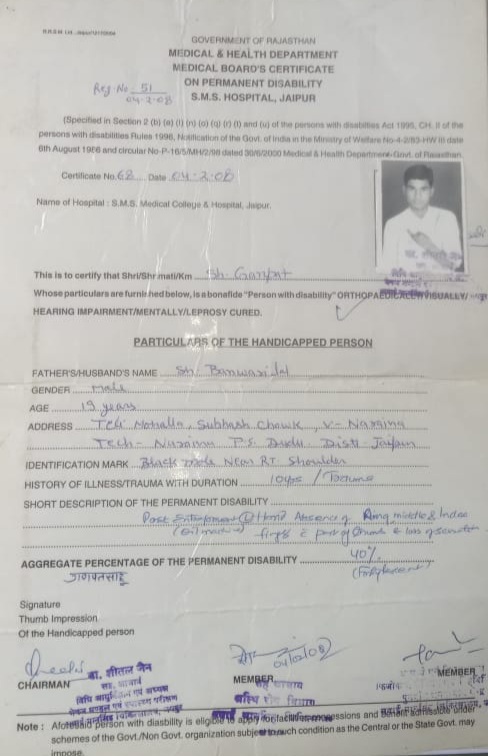 GOVERNMENT OF RAJASTHAN
MEDICAL & HEALTH DEPARTMENT
MEDICAL BOARD'S CERTIFICATE
ON PERMANENT DISABILITY
S.M.S. HOSPITAL, JAIPUR
Reg. No 51
04-2-08
(Specified in Section 2 (b) (e) (l) (n) (o) (q) (r) (t) and (u) of the persons with disabilties Act 1995, CH. II of the
persons with disabilities Rules 1996, Notification of the Govt. of India in the Ministry of Welfare No-4-2/83-HW III date
6th August 1986 and circular No-P-16/5/MH/2/98 dated 30/6/2000 Medical & Health Department-Govt. of Rajasthan
Certificate No. 68 Date 04-2-08
Name of Hospital : S.M.S. Medical College & Hospital, Jaipur.
This is to certify that Shri/Shrimati/Km Sh. Ganpat
Whose particulars are furnished below, is a bonafide "Person with disability" ORTHOPAEDICALLY/VISUALLY/
HEARING IMPAIRMENT/MENTALLY/LEPROSY CURED.
PARTICULARS OF THE HANDICAPPED PERSON
FATHER'S/HUSBAND'S NAME Sh. Banwarilal
GENDER Male
AGE 19 years
ADDRESS Teli Mohalla, Subhash Chowk, V- Naraina
Teh- Naraina P.S. Dudu, Distt Jaipur
IDENTIFICATION MARK Black mole Near RT Shoulder
HISTORY OF ILLNESS/TRAUMA WITH DURATION 10 yrs / Trauma
SHORT DESCRIPTION OF THE PERMANENT DISABILITY
Post Hand Absence of Ring middle & Index
& part of thumb & loss of sensation
AGGREGATE PERCENTAGE OF THE PERMANENT DISABILITY 40%
गणपतसाहू
Signature
Thumb Impression
Of the Handicapped person
डा. शीतल जैन
CHAIRMAN
MEMBER
MEMBER
सह आचार्य
अस्थि रोग विभाग
Note : Aforesaid person with disability is eligible to apply for and benefit admissible under,
schemes of the Govt./Non Govt. organization subject to such condition as the Central or the State Govt. may
impose.